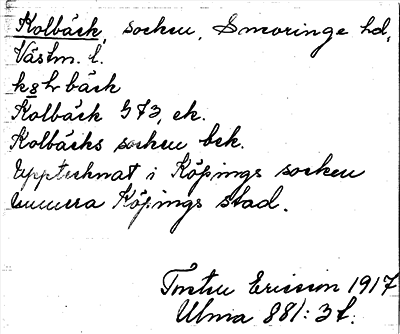 Kolbäck, socken, Snevringe hd,
Västm. l.
bäck
Kolbäck 973, ek.
Kolbäcks socken bek.
Upptecknat i Köpings socken
Köpings stad.
Ericsson 1917
Ulma 881: 3 f.